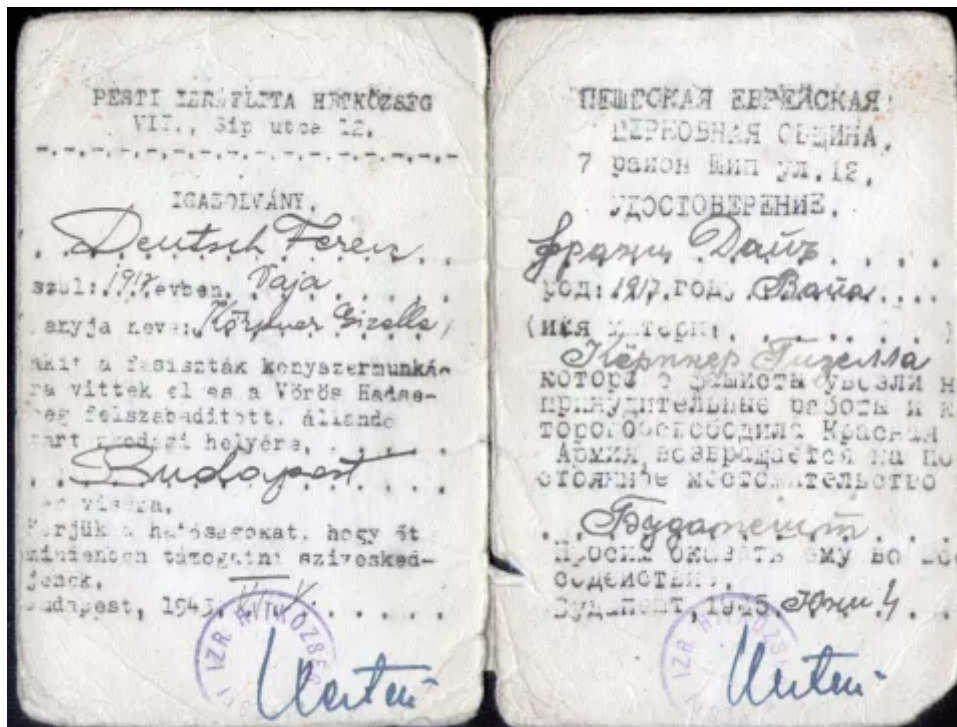 PESTI IZRAELITA HITKÖZSÉG
VII., Sip utca 12.
IGAZOLVÁNY.
Deutsch Ferenc
szül: 1917 évben. Vaja
anyja neve: Gizella
akit a fasiszták kényszermunká-
ra vittek el és a Vörös Hadse-
reg felszabadított, állandó
helyére,
Budapest
vissza.
Kérjük a hatóságokat, hogy őt
mindenben támogatni szívesked-
jenek.
Budapest, 1945.
IZR. HITKÖZSÉG
ПЕШТСКАЯ ЕВРЕЙСКАЯ
ЦЕРКОВНАЯ ОБЩИНА.
7 район Шип ул.12.
УДОСТОВЕРЕНИЕ.
Франц Дайч
род: 1917 году. Вайа
(имя матери:
Кёрпнер Гизелла
которого фашисты увезли н
принудительные работы и к
торого освободила Красная
Армия, возвращается на по
стоянное местожительство
Будапешт
Просим оказать ему во все
содействие.
Будапешт, 1945. Юни 4
IZR. HITKÖZSÉG